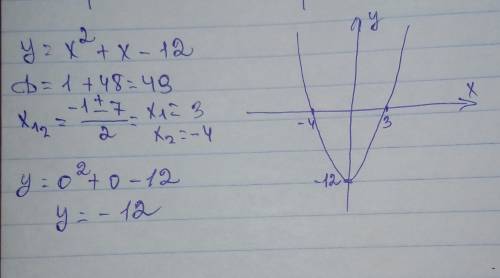 y = x² + x - 12
D = 1 + 48 = 49
x₁₂ = (-1 ± 7)/2 = x₁ = 3
x₂ = -4
y = 0² + 0 - 12
y = -12
y
x
-4
3
-12